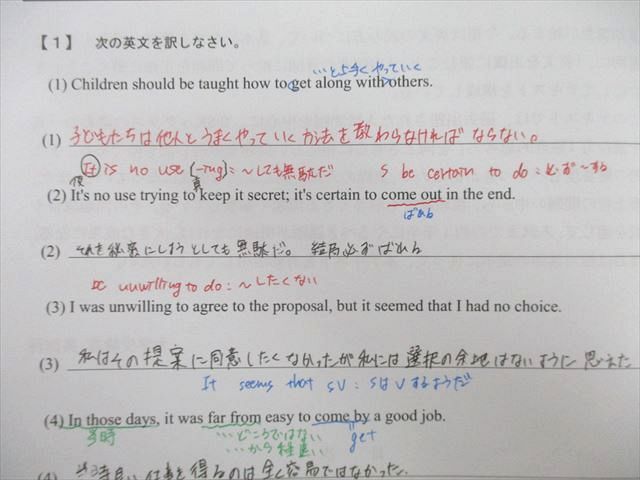 【1】 次の英文を訳しなさい。
…と上手くやっていく
(1) Children should be taught how to get along with others.
(1) 子どもたちは他人とうまくやっていく方法を教わらなければならない。
It is no use (-ing):〜しても無駄だ S be certain to do:必ず〜する
仮 真
(2) It's no use trying to keep it secret; it's certain to come out in the end.
ばれる
(2) それを秘密にしようとしても無駄だ。 結局必ずばれる
be unwilling to do:〜したくない
(3) I was unwilling to agree to the proposal, but it seemed that I had no choice.
(3) 私はその提案に同意したくなかったが私には選択の余地はないように思えた
It seems that SV:SはVするようだ
(4) In those days, it was far from easy to come by a good job.
当時 …どころではない get
…から程遠い
(4) 当時良い仕事を得るのは全く容易ではなかった.